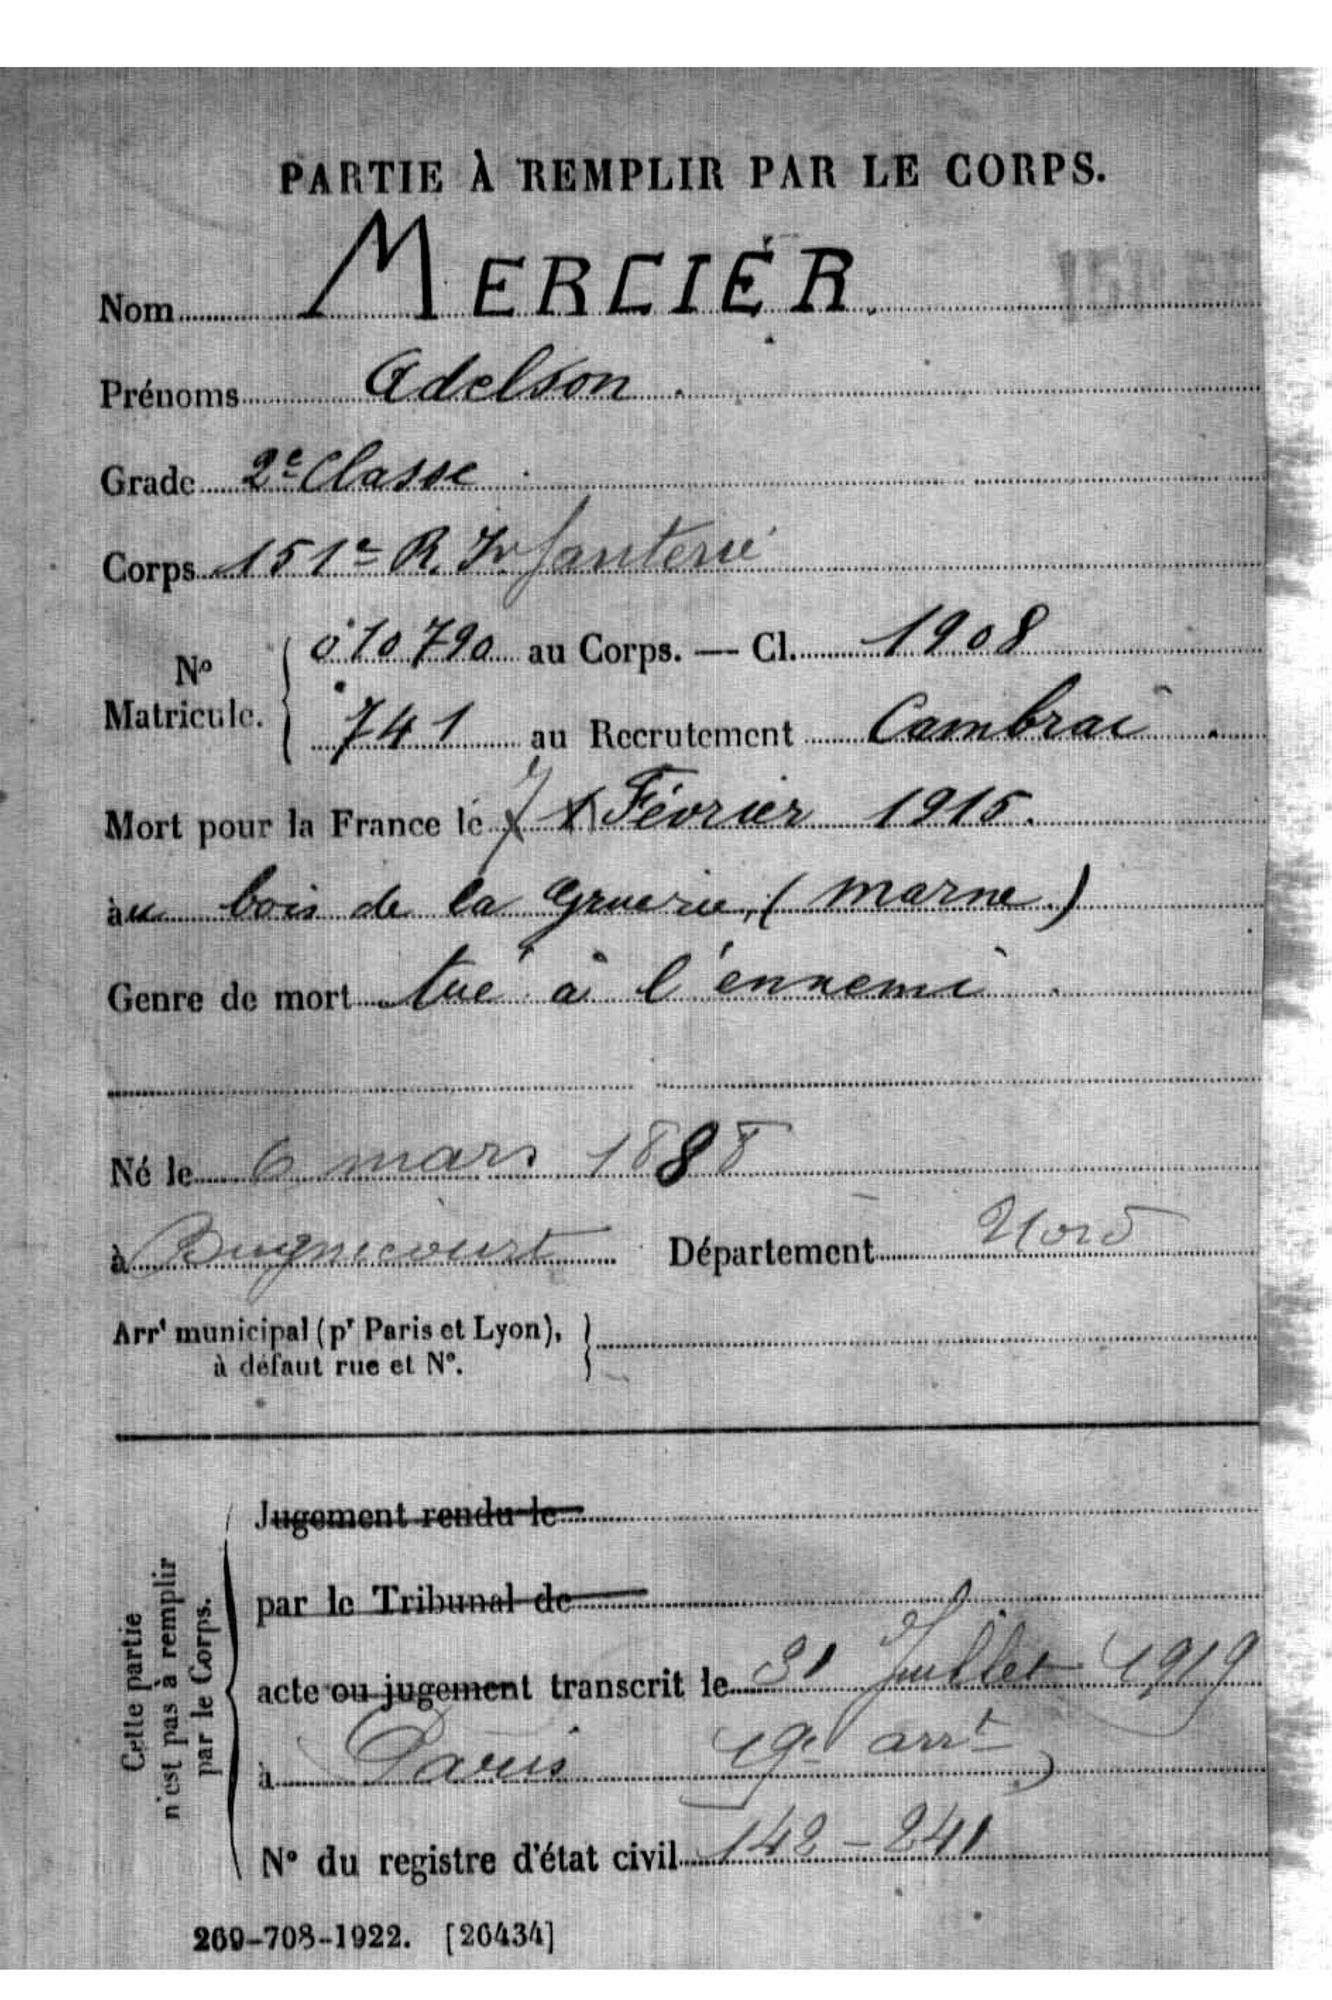 PARTIE À REMPLIR PAR LE CORPS.
Nom MERCIER.
Prénoms Adelson.
Grade 2e Classe
Corps 151e R. Infanterie
No Matricule. 010790 au Corps. — Cl. 1908
741 au Recrutement Cambrai.
Mort pour la France le 7 Février 1915.
au bois de la Gruerie, (Marne.)
Genre de mort tué à l'ennemi.
Né le 6 mars 1888
à Bugnicourt Département Nord
Arrt municipal (pr Paris et Lyon),
à défaut rue et N°.
Cette partie
n'est pas à remplir
par le Corps.
Jugement rendu le
par le Tribunal de
acte ou jugement transcrit le 31 Juillet 1919
à Paris 19e arrt
N° du registre d'état civil 142-241
269-708-1922. [26434]